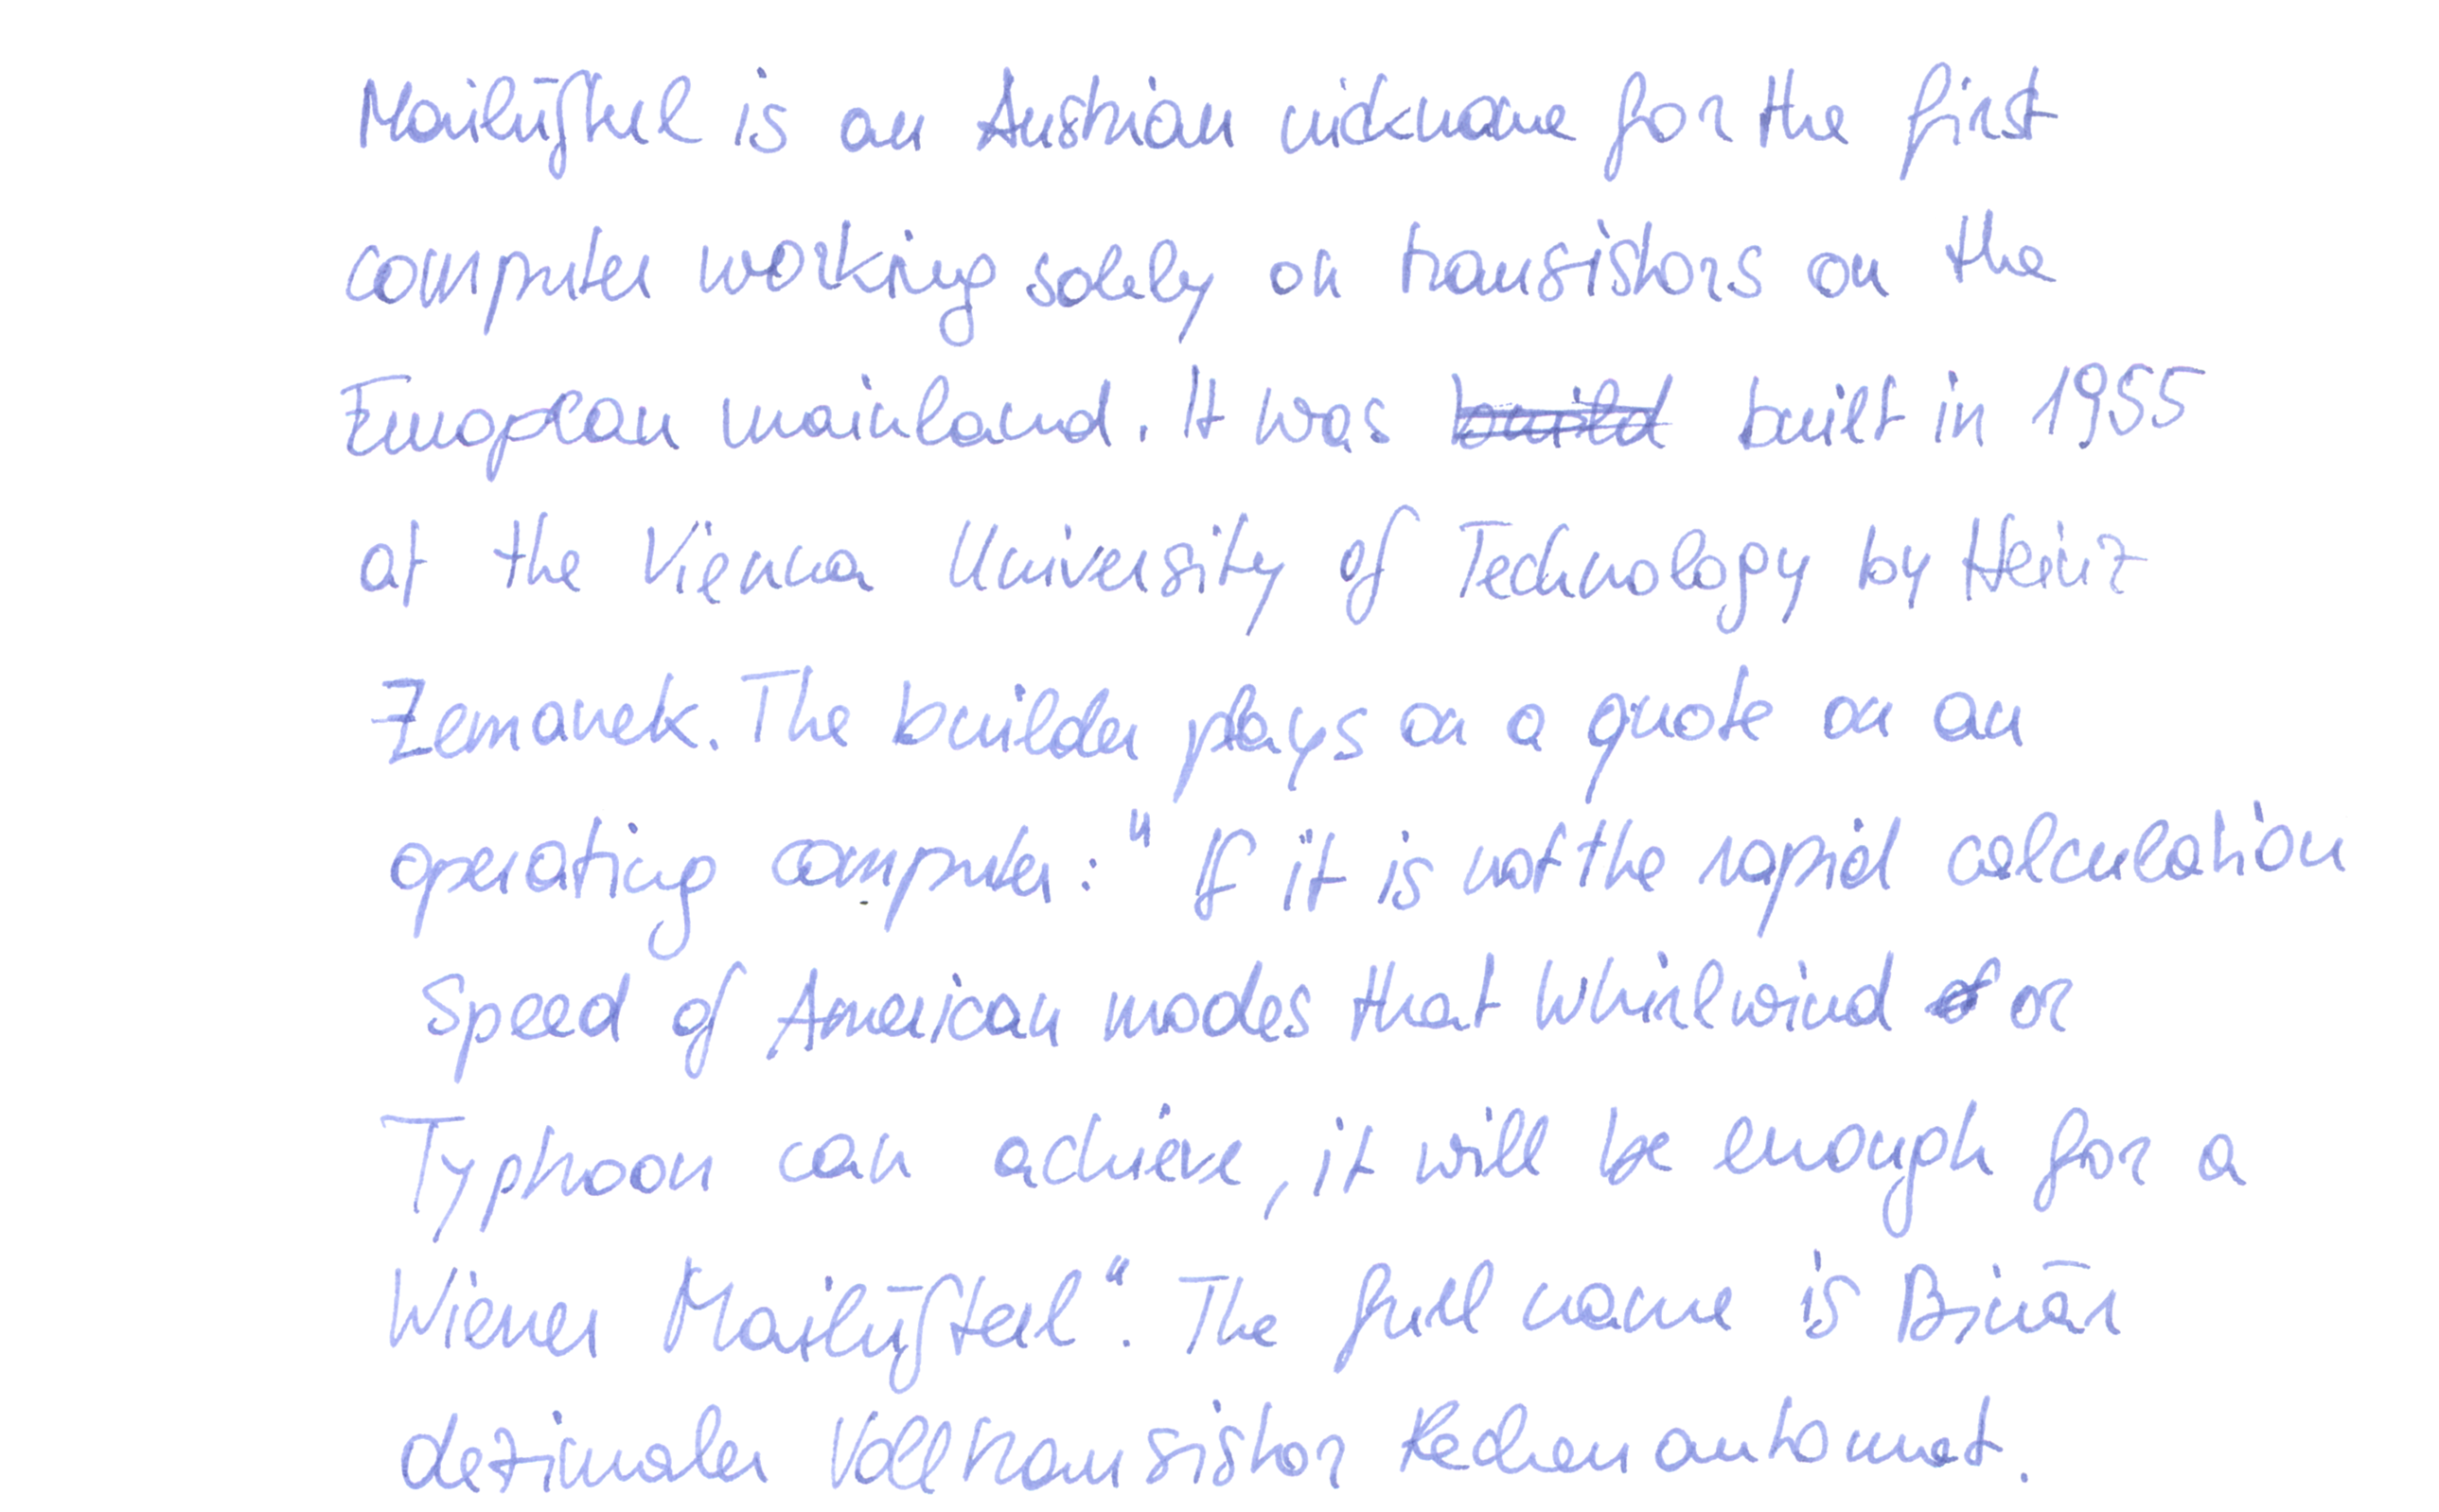 Mailüfterl is an Austrian nickname for the first
computer working solely on transistors on the
European mainland. It was build built in 1955
at the Vienna University of Technology by Heinz
Zemanek. The builder plays on a quote on an
operating computer: "If it is not the rapid calculation
speed of American models that Whirlwind or
Typhoon can achieve, it will be enough for a
Wiener Mailüfterl". The full name is Binär
dezimaler Volltransistor Rechenautomat.